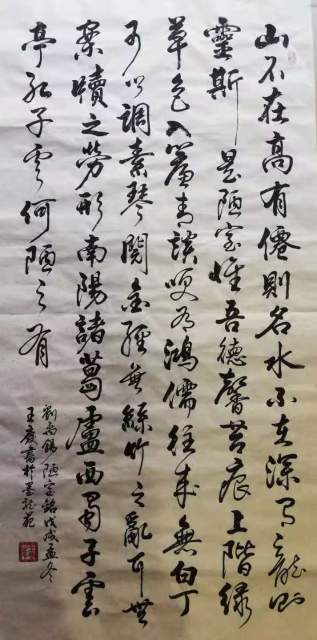 山不在高有僊則名水不在深有龍則
靈斯是陋室惟吾德馨苔痕上階緑
草色入簾青談笑有鴻儒往來無白丁
可以調素琴閱金經無絲竹之亂耳無
案牘之勞形南陽諸葛廬西蜀子雲
亭孔子云何陋之有
劉禹錫陋室銘戊戌孟冬
王慶書於墨龍苑